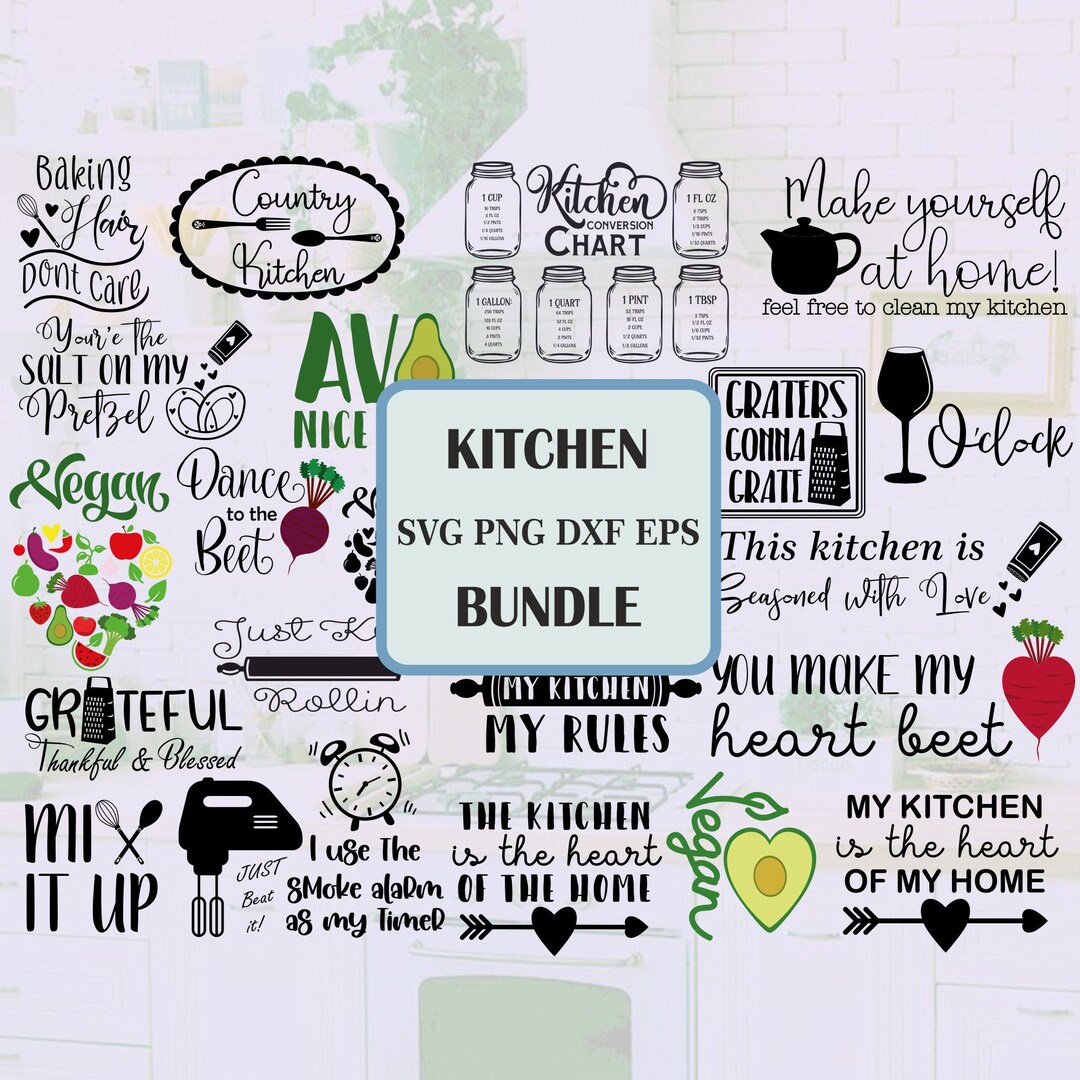 Baking
Hair
Dont Care
Country
Kitchen
1 CUP
16 TBSPS
8 FL OZ
1/2 PINTS
1/4 QUARTS
1/16 GALLONS
Kitchen
CONVERSION
CHART
1 FL OZ
6 TSPS
2 TBSPS
1/8 CUPS
1/16 PINTS
1/32 QUARTS
1 GALLON:
256 TBSPS
128 FL OZ
16 CUPS
8 PINTS
4 QUARTS
1 QUART
64 TBSPS
32 FL OZ
4 CUPS
2 PINTS
1/4 GALLONS
1 PINT
32 TBSPS
16 FL OZ
2 CUPS
1/2 QUARTS
1/8 GALLONS
1 TBSP
3 TSPS
1/2 FL OZ
1/16 CUPS
1/32 PINTS
Make yourself
at home!
feel free to clean my kitchen
Your'e the
SALT ON MY
Pretzel
AV
NICE
GRATERS
GONNA
GRATE
O'clock
KITCHEN
SVG PNG DXF EPS
BUNDLE
Vegan
Dance
to the
Beet
This kitchen is
Seasoned with Love
Just K
Rollin
MY KITCHEN
MY RULES
YOU MAKE MY
heart beet
GR TEFUL
Thankful & Blessed
MIX
IT UP
JUST
Beat
it!
I use The
smoke alarm
as my Timer
THE KITCHEN
is the heart
OF THE HOME
Vegan
MY KITCHEN
is the heart
OF MY HOME